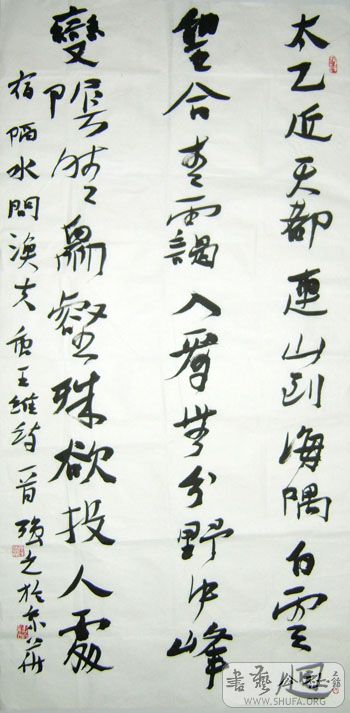 太乙近天都連山到海隅白雲回
望合青靄入看無分野中峰
變陰晴眾壑殊欲投人處
宿隔水問漁夫 唐王維詩一首 强之於京華
WWW.SHUFA.ORG